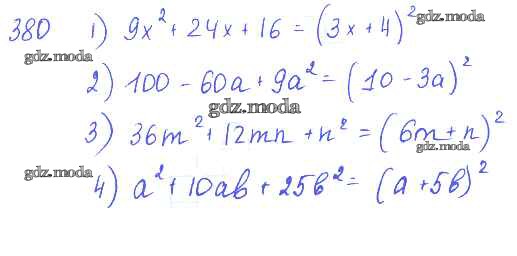 380 1) 9x² + 24x + 16 = (3x + 4)²
gdz.moda
gdz.moda
2) 100 - 60a + 9a² = (10 - 3a)²
gdz.moda
3) 36m² + 12mn + n² = (6m + n)²
gdz.moda
gdz.moda
4) a² + 10ab + 25b² = (a + 5b)²